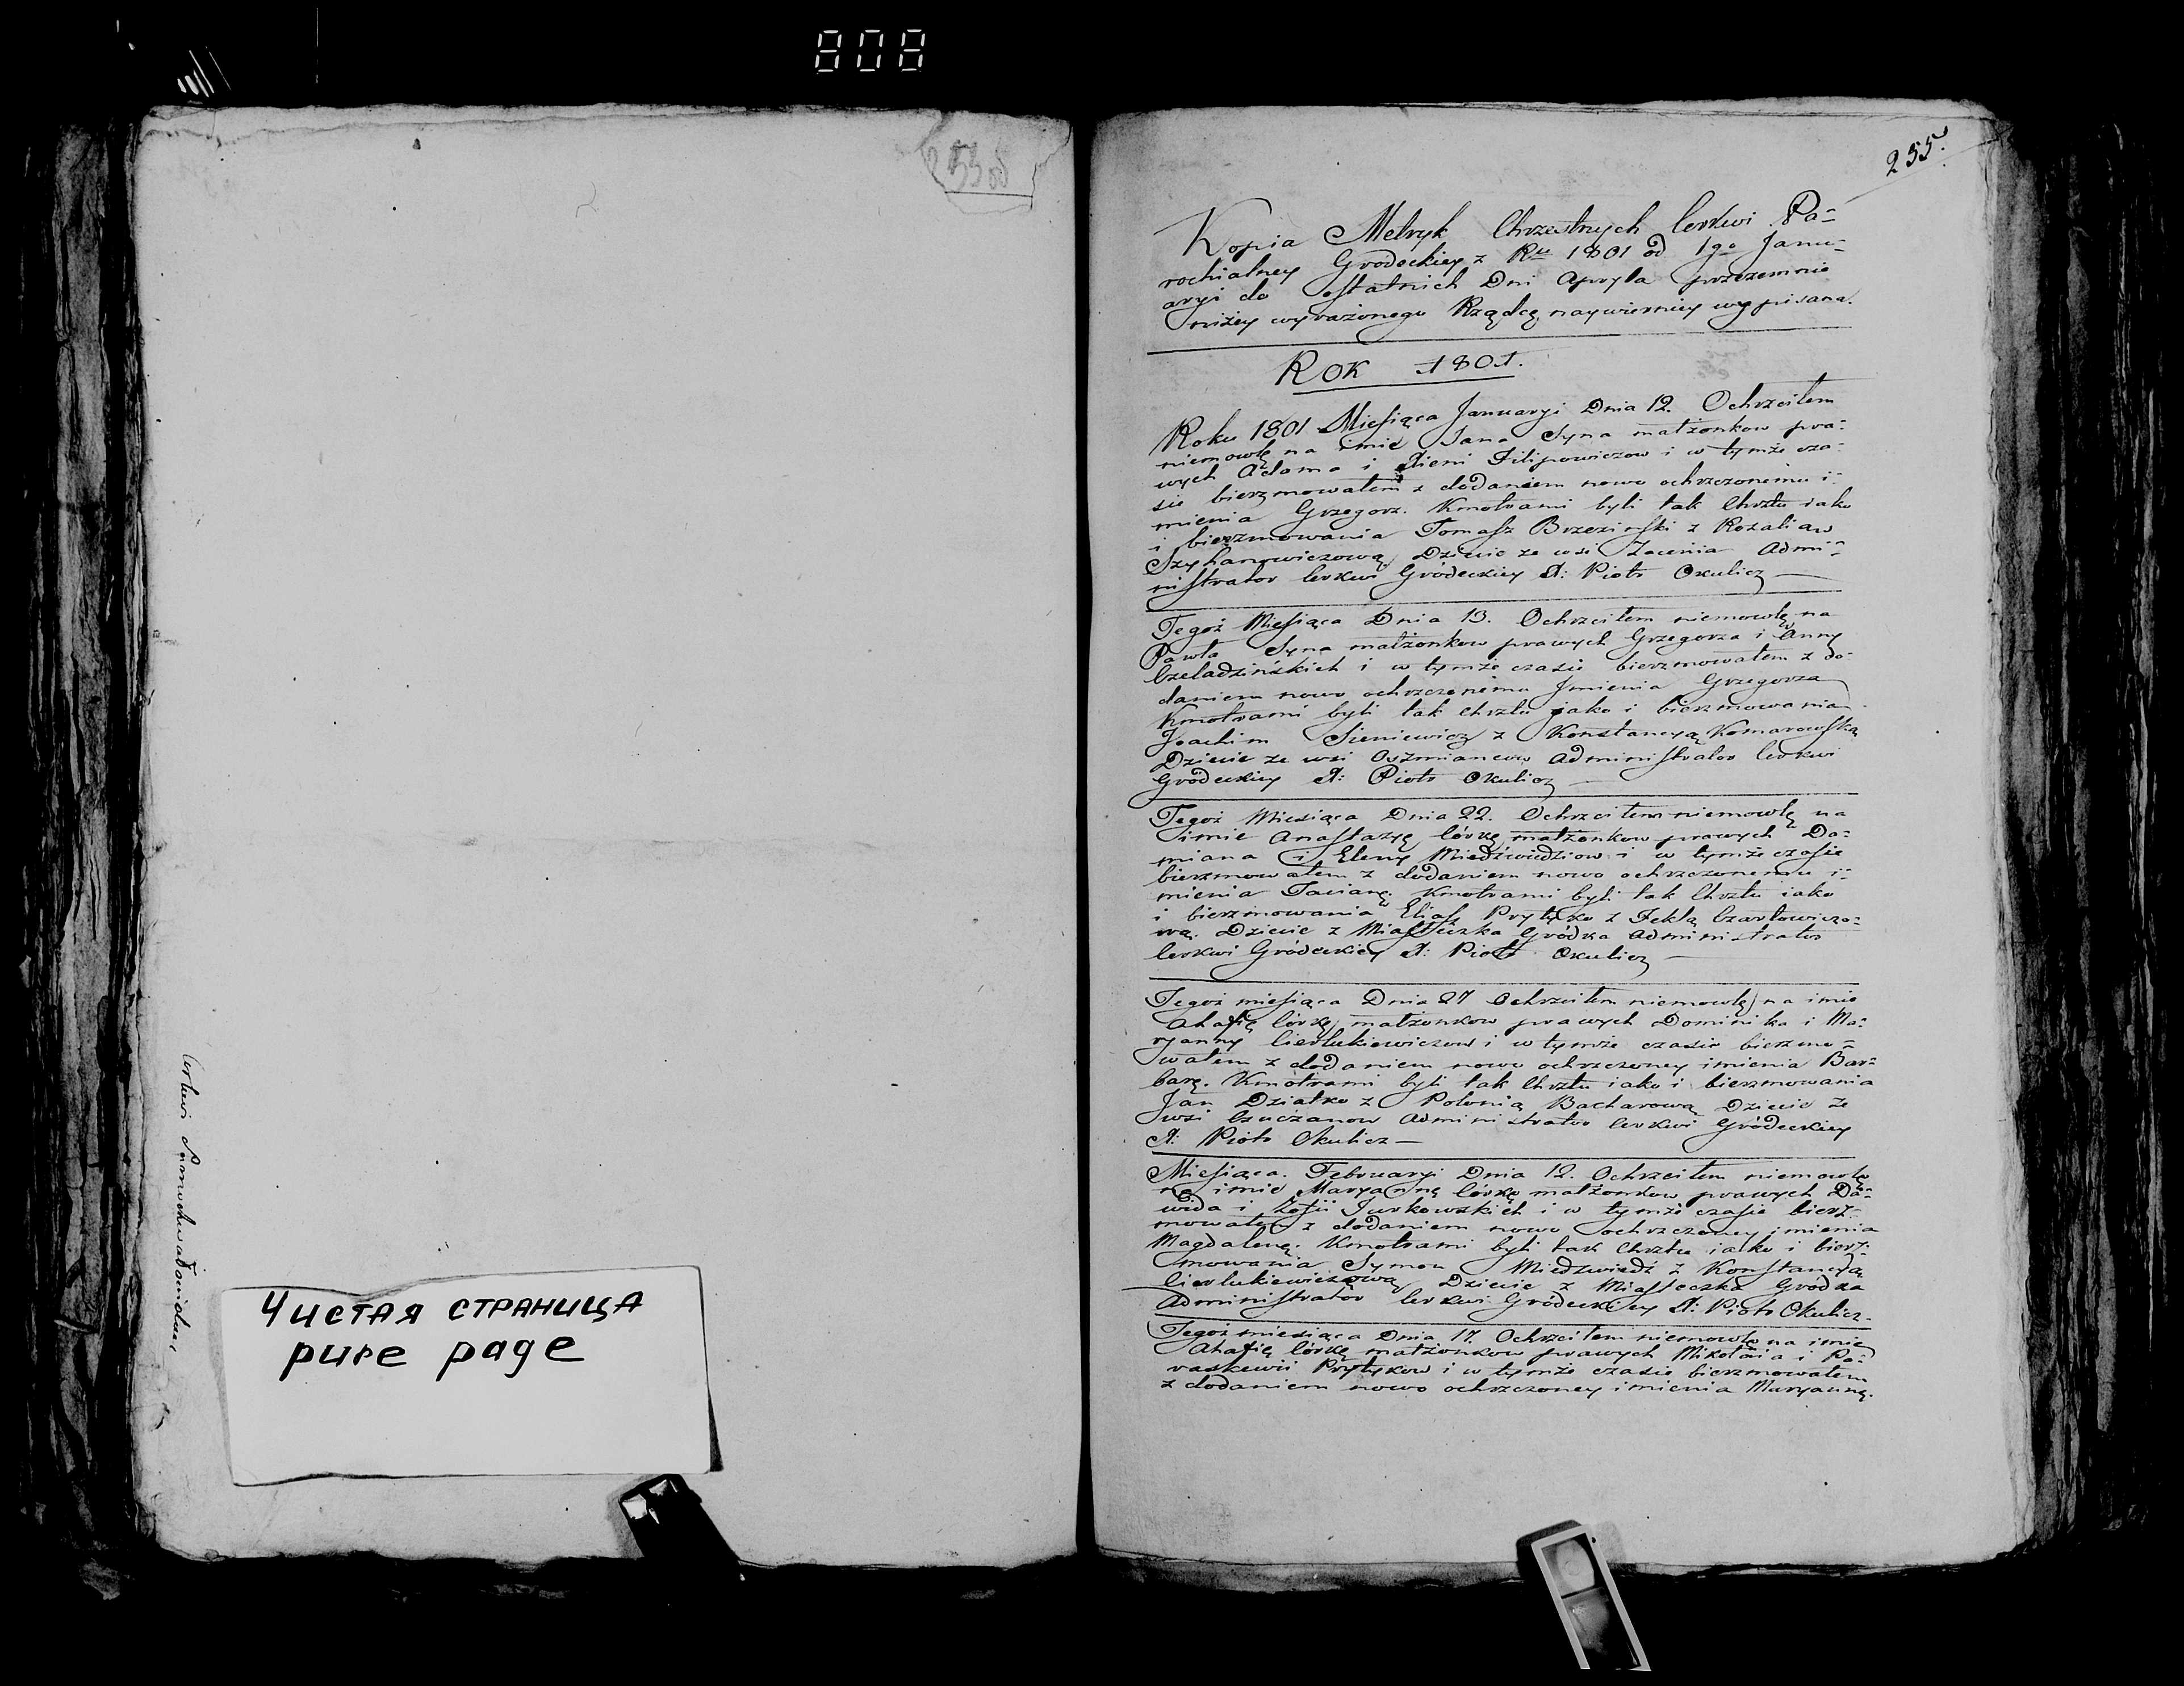 808
255.
Kopia Metryk Chrzestnych Cerkwi Pa-
rochialney Grodeckiey z Rku 1801 od 1go Janu-
aryi do ostatnich Dni Apryla przezemnie
niżey wyrażonego Rządcę naywierniey wypisana.
Rok 1801.
Roku 1801 Miesiąca Januaryi Dnia 12. Ochrzciłem
niemowlę na imie Jana Syna małżonkow pra-
wych Adama i Filipowiczow i w tymże cza-
sie bierzmowałem z dodaniem nowo ochrzczonemu i-
mienia Grzegorz. Kmotrami byli tak Chrztu iako
i bierzmowania Tomasz Brzezinski z Rozalią
Szyhanowiczową Dziecie ze wsi Admi-
nistrator Cerkwi Gródeckiey X: Piotr Okulicz
Tegoż Miesiąca Dnia 13. Ochrzciłem niemowlę na
Pawła Syna małżonkow prawych Grzegorza i Anny
Czeladzińskich i w tymże czasie bierzmowałem z do-
daniem nowo ochrzczonemu Jmienia Grzegorza
Kmotrami byli tak chrztu jako i bierzmowania
Joachim Sieniewicz z Konstancyą Komarowską
Dziecie ze wsi Oszmiancow Administrator Cerkwi
Gródeckiey X: Piotr Okulicz
Tegoż Miesiąca Dnia 22. Ochrzciłem niemowlę na
imie Anastazyę Córkę małżonkow prawych Da-
miana i Eleny Miedźwiedziow i w tymże czasie
bierzmowałem z dodaniem nowo ochrzczonemu i-
mienia Tacianę. Kmotrami byli tak Chrztu iako
i bierzmowania Eliasz Prytyko z Teklą Czartowiczo-
wą. Dziecie z Miasteczka Gródka Administrator
Cerkwi Gródeckiey X: Piotr Okulicz
Tegoż miesiąca Dnia 27 Ochrzciłem niemowlę na imie
Ahafię Córkę małżonkow prawych Dominika i Ma-
ryanny Cierlukiewiczow i w tymże czasie bierzmo-
wałem z dodaniem nowo ochrzczoney imienia Bar-
barę. Kmotrami byli tak Chrztu iako i bierzmowania
Jan Działko z Polonią Bacharową Dziecie ze
wsi Czuczanow Administrator Cerkwi Gródeckiey
X: Piotr Okulicz
Miesiąca Februaryi Dnia 12. Ochrzciłem niemowlę
na imie Maryannę Córkę małżonkow prawych Da-
wida i Zofii Jurkowskich i w tymże czasie bierz-
mowałem z dodaniem nowo ochrzczoney imienia
Magdalenę. Kmotrami byli tak Chrztu iako i bierz-
mowania Symon Miedzwiedź z Konstancyą
Cierlukiewiczową Dziecie z Miasteczka Gródka
Administrator Cerkwi Gródeckiey X: Piotr Okulicz.
Tegoż miesiąca Dnia 17. Ochrzciłem niemowlę na imie
Ahafię Córkę małżonkow prawych Mikołaia i Pa-
raskewii Prytykow i w tymże czasie bierzmowałem
z dodaniem nowo ochrzczoney imienia Maryannę.
Чистая страница
pure page